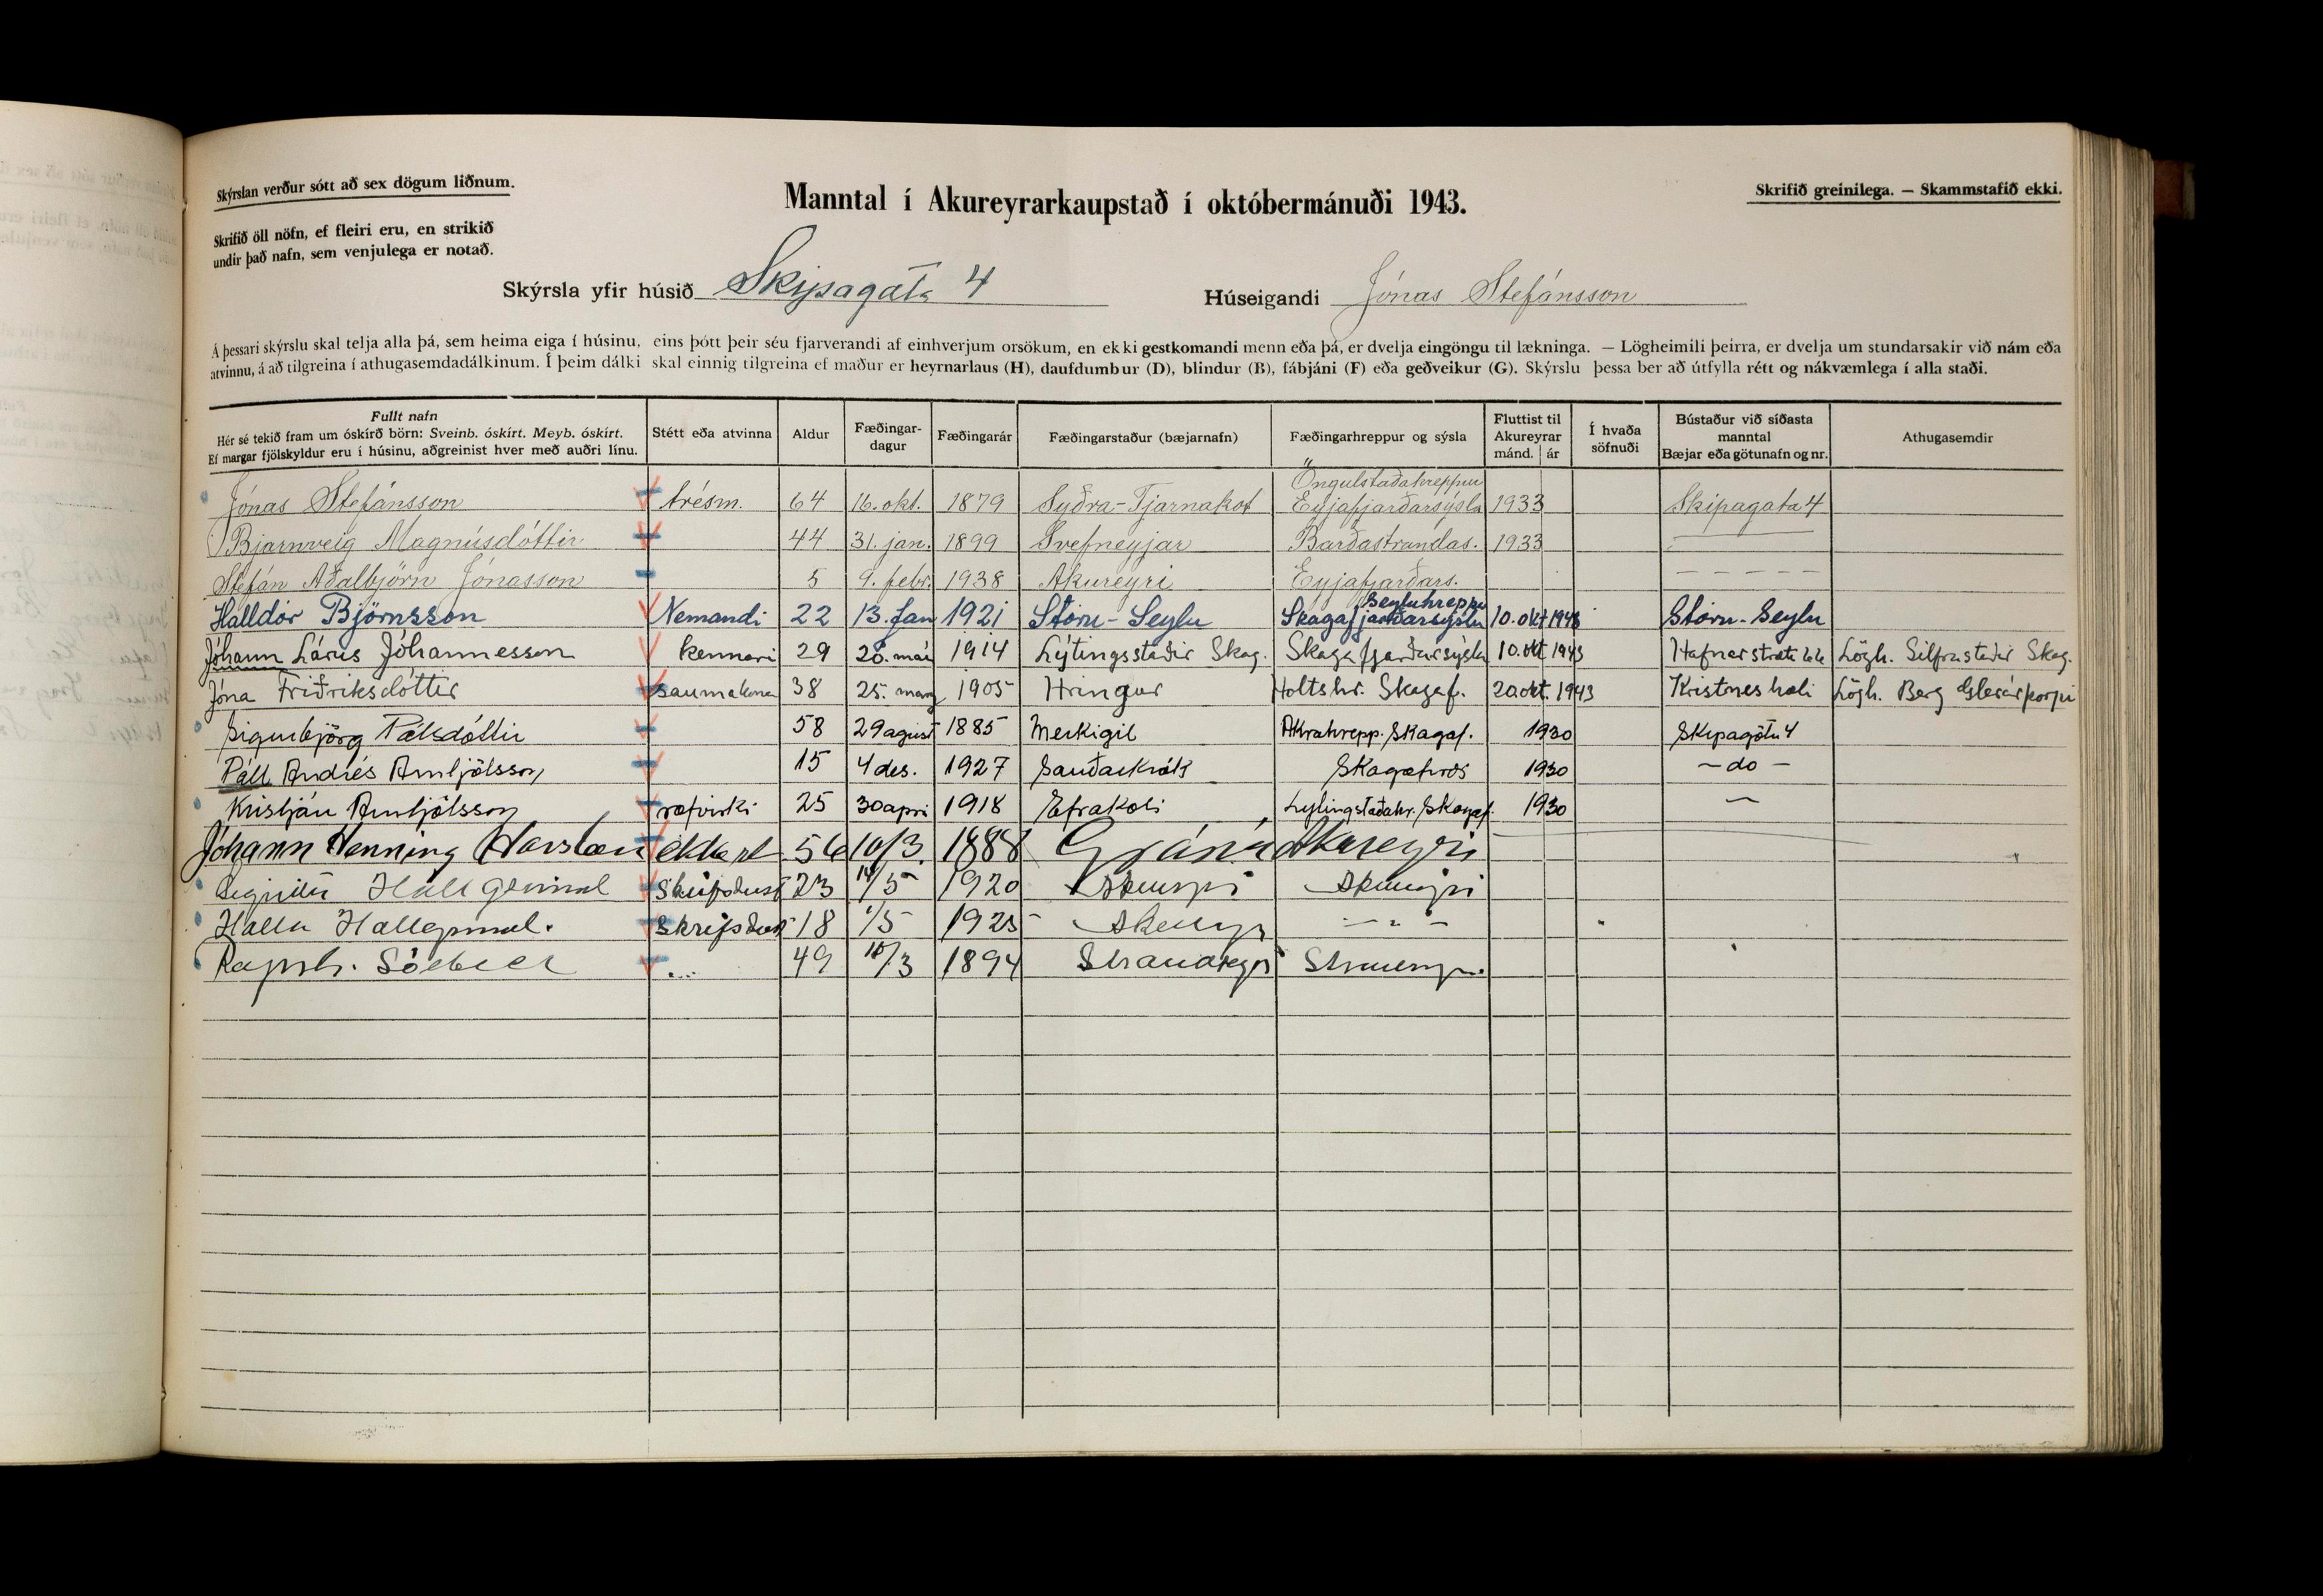 Skýrslan verður sótt að sex dögum liðnum.
Manntal í Akureyrarkaupstað í októbermánuði 1943.
Skrifið greinilega. — Skammstafið ekki.
Skrifið öll nöfn, ef fleiri eru, en strikið
undir það nafn, sem venjulega er notað.
Skýrsla yfir húsið Skipagata 4 Húseigandi Jónas Stefánsson
Á þessari skýrslu skal telja alla þá, sem heima eiga í húsinu, eins þótt þeir séu fjarverandi af einhverjum orsökum, en ekki gestkomandi menn eða þá, er dvelja eingöngu til lækninga. — Lögheimili þeirra, er dvelja um stundarsakir við nám eða
atvinnu, á að tilgreina í athugasemdadálkinum. Í þeim dálki skal einnig tilgreina ef maður er heyrnarlaus (H), daufdumbur (D), blindur (B), fábjáni (F) eða geðveikur (G). Skýrslu þessa ber að útfylla rétt og nákvæmlega í alla staði.
Fullt nafn
Hér sé tekið fram um óskírð börn: Sveinb. óskírt. Meyb. óskírt.
Ef margar fjölskyldur eru í húsinu, aðgreinist hver með auðri línu.
Stétt eða atvinna
Aldur
Fæðingar-
dagur
Fæðingarár
Fæðingarstaður (bæjarnafn)
Fæðingarhreppur og sýsla
Fluttist til
Akureyrar
mánd. ár
Í hvaða
söfnuði
Bústaður við síðasta
manntal
Bæjar eða götunafn og nr.
Athugasemdir
Jónas Stefánsson trésm. 64 16. okt. 1879 Syðra-Tjarnakot Öngulstaðahreppur Eyjafjarðarsýsla 1933 Skipagata 4
Bjarnveig Magnúsdóttir 44 31. jan. 1899 Svefneyjar Barðastrandas. 1933
Stefán Aðalbjörn Jónasson 5 9. febr. 1938 Akureyri Eyjafjarðars. – – – – –
Halldór Björnsson Nemandi 22 13. Jan 1921 Stóru-Seylu Seyluhreppur Skagafjarðarsýslu 10. okt Stóru-Seylu
Jóhann Lárus Jóhannesson kennari 29 1914 Lýtingsstaðir Skag. Skagafjarðarsýsla 10. okt 1943 Lögh. Silfrastaðir Skag.
Jóna Friðriksdóttir saumakona 38 25. marz 1905 Hringur Holtshr. Skagaf. 20 okt. 1943 Kristneshæli Lögh. Berg Glerárþorpi
Sigurbjörg Pálsdóttir 58 29 agúst 1885 Merkigil Akrahrepp. Skagaf. 1930 Skipagötu 4
Páll Andrés Arnljótsson 15 4 des. 1927 Sauðárkrók 1930 – do –
Kristján Arnljótsson rafvirki 25 30 apri 1918 Efrakoti Lýtingstaðahr. Skagaf. 1930 –
Jóhann Henning 10/3. 1888 Akureyri
Hallgrímsd 23 1920 Akureyri Akureyri
Halla Hallgrímsd. 18 1/5 1925 – " –
49 1894